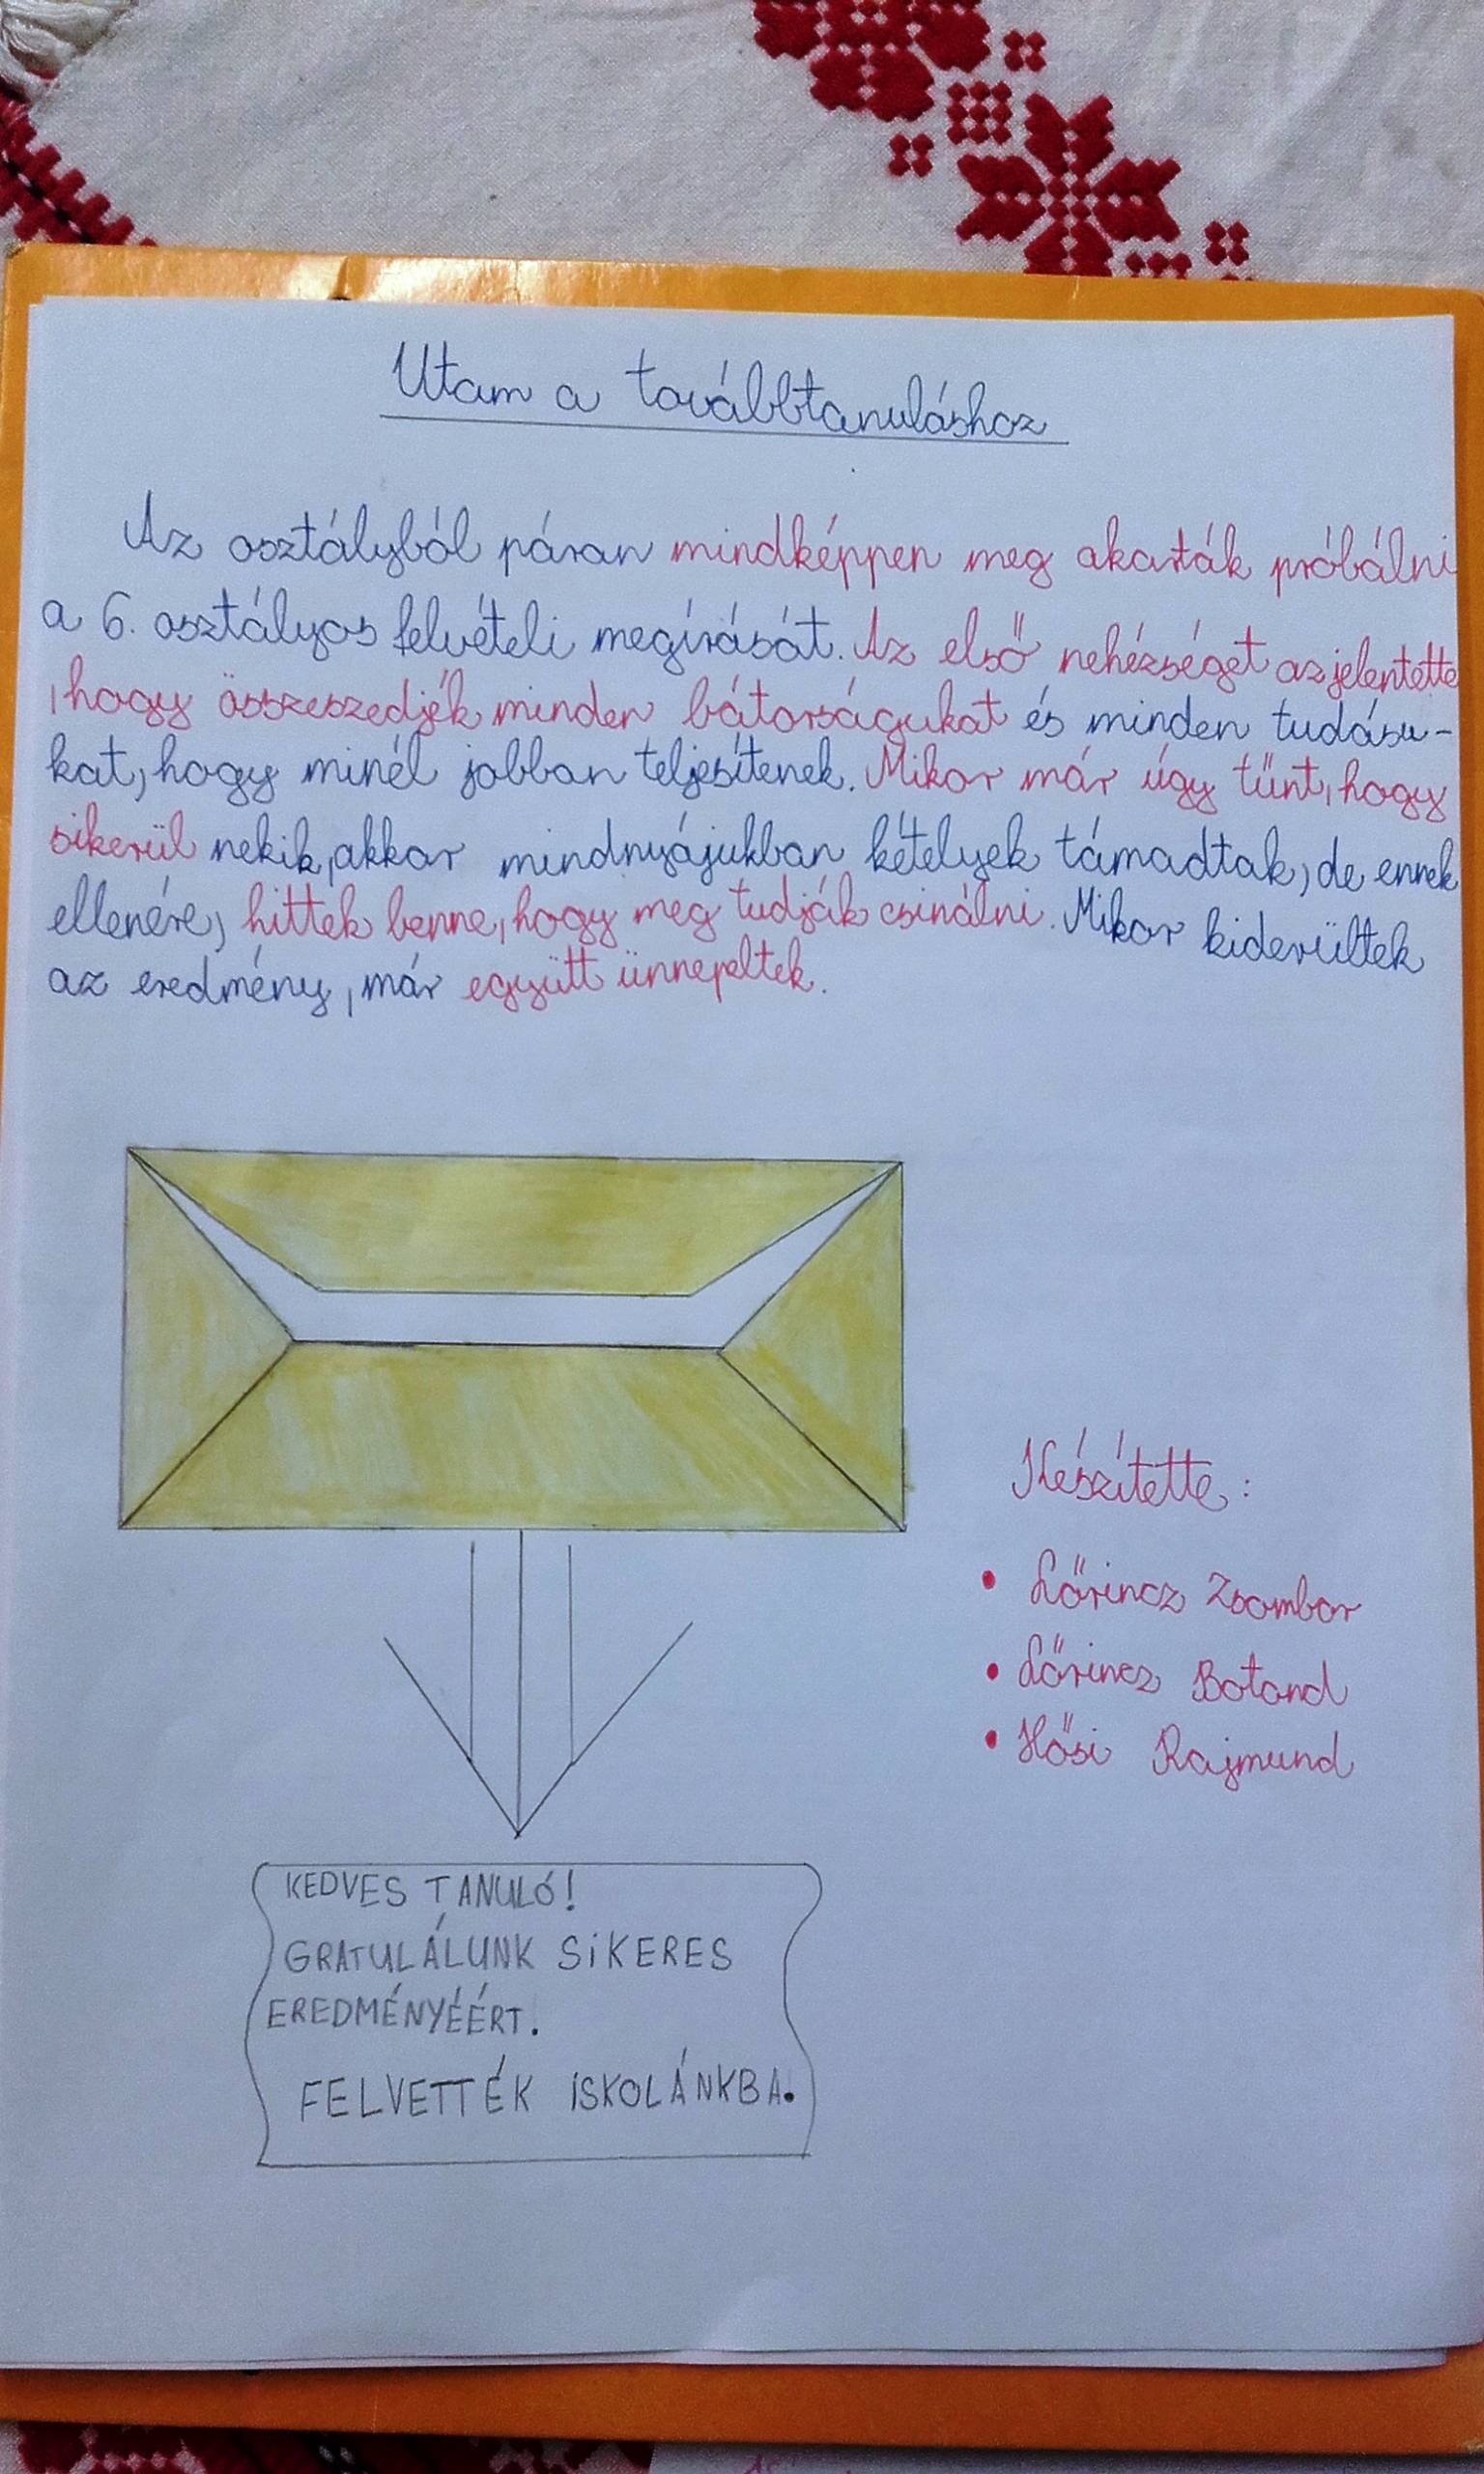 Utam a továbbtanuláshoz
Az osztályból páran mindképpen meg akarták próbálni
a 6. osztályos felvételi megírását. Az első nehézséget az jelentette
, hogy összeszedjék minden bátorságukat és minden tudásu-
kat, hogy minél jobban teljesítenek. Mikor már úgy tűnt, hogy
sikerül nekik, akkor mindnyájukban kételyek támadtak, de ennek
ellenére, hittek benne, hogy meg tudják csinálni. Mikor kiderültek
az eredmény, már együtt ünnepeltek.
Készítette:
• Lőrincz Zsombor
• Lőrincz Botond
• Hősi Rajmund
KEDVES TANULÓ!
GRATULÁLUNK SIKERES
EREDMÉNYÉÉRT.
FELVETTÉK ISKOLÁNKBA.